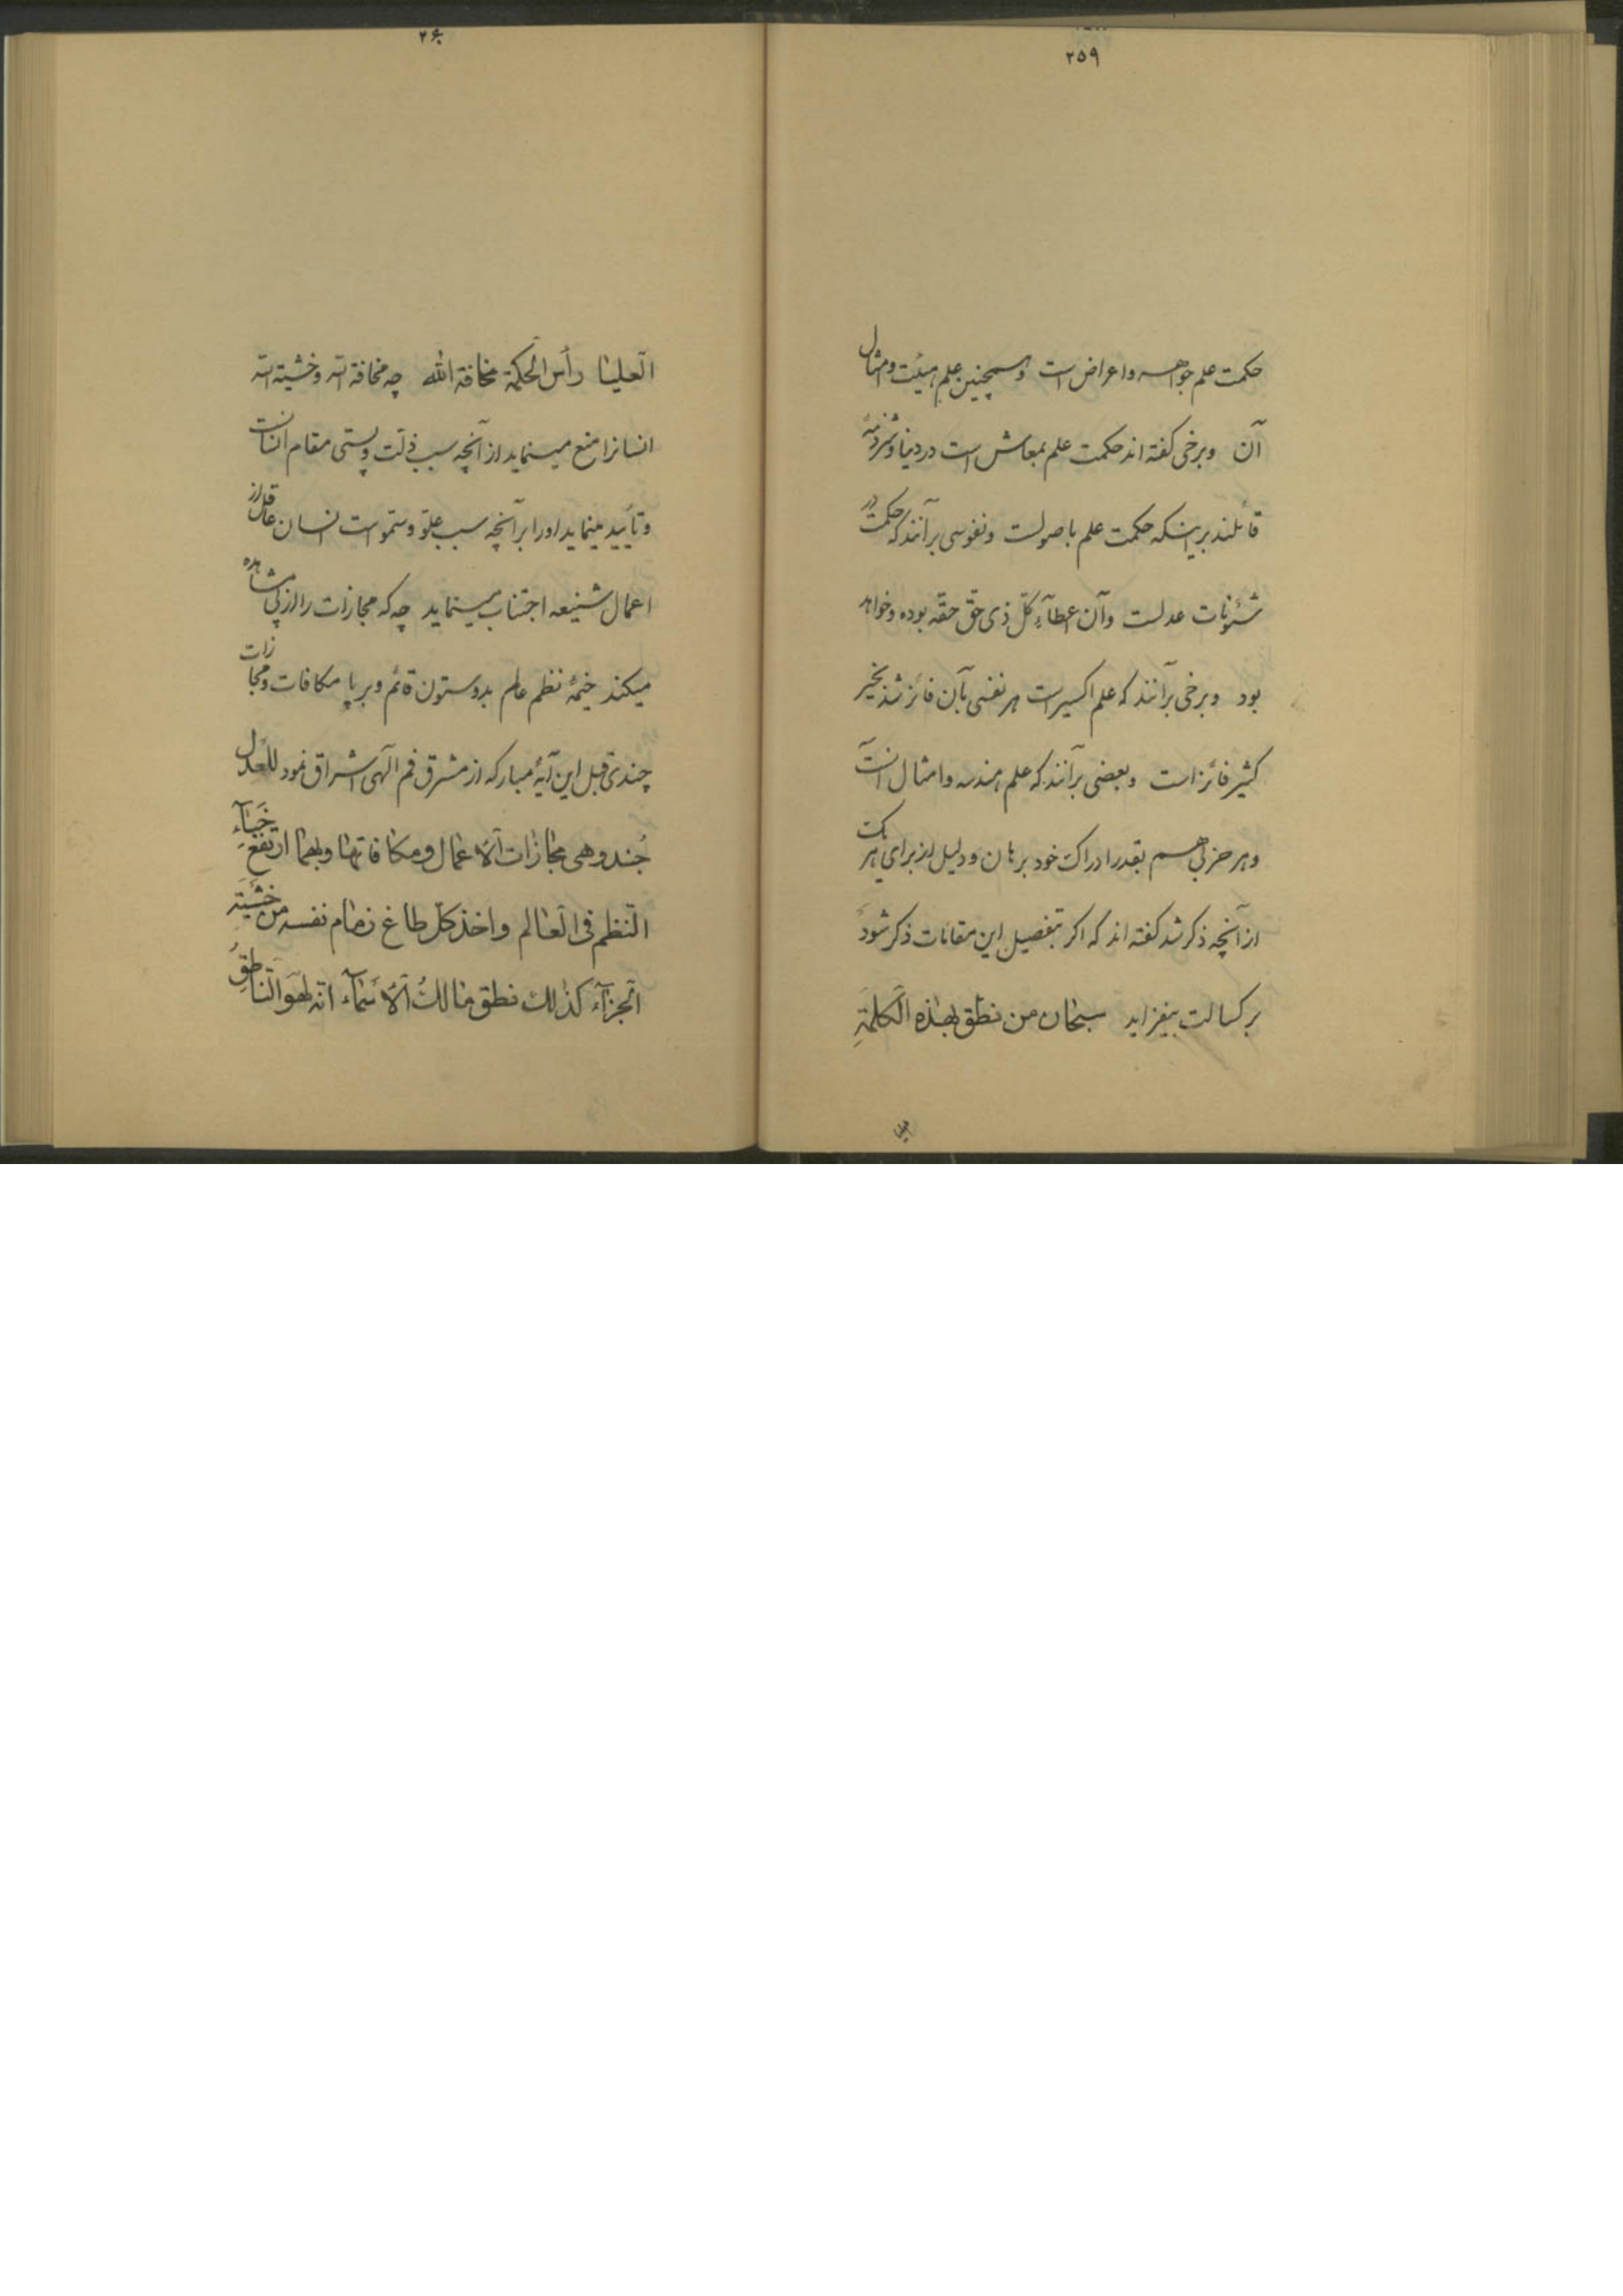 ۲۵۹
حکمت علم جواهر و اعراض است و همچنین علم هیئت و امثال
آن و برخی گفته‌اند حکمت علم بمعاش است در دنیا و شرذمه
قائلند بر اینکه حکمت علم باصولست و نفوسی برآنند که حکمت در
شئونات عدلست و آن اعطآء کلّ ذی حقّ حقّه بوده و خواهد
بود و برخی برآنند که علم اکسیر است هر نفسی بآن فائز شد بخیر
کثیر فائز است و بعضی برآنند که علم هندسه و امثال آنست
و هر حزبی هم بقدر ادراک خود برهان و دلیل از برای هر یک
از آنچه ذکر شد گفته‌اند که اکر بتفصیل این مقامات ذکر شود
بر کسالت بیفزاید سبحان من نطق بهذه الکلمة
العلیا
۲۶۰
العلیا رأس الحکمة مخافة الله چه مخافة الله و خشیة الله
انسانرا منع مینماید از آنچه سبب ذلّت و پستی مقام انسانست
و تأیید مینماید او را بر آنچه سبب علوّ و سموّ است انسان عاقل از
اعمال شنیعه اجتناب مینماید چه که مجازات را از پی مشاهده
میکند خیمهٔ نظم عالم بدو ستون قائم و برپا مکافات و مجازات
چندی قبل این آیهٔ مبارکه از مشرق فم الهی اشراق نمود للعدل
جُند و هی مجازات الأعمال و مکافاتها و بهما ارتفع خبآء
النّظم فی العالم و اخذ کلّ طاغ زمام نفسه من خشیة
الجزآء کذلک نطق مالک الأسمآء انّه لهو النّاطق